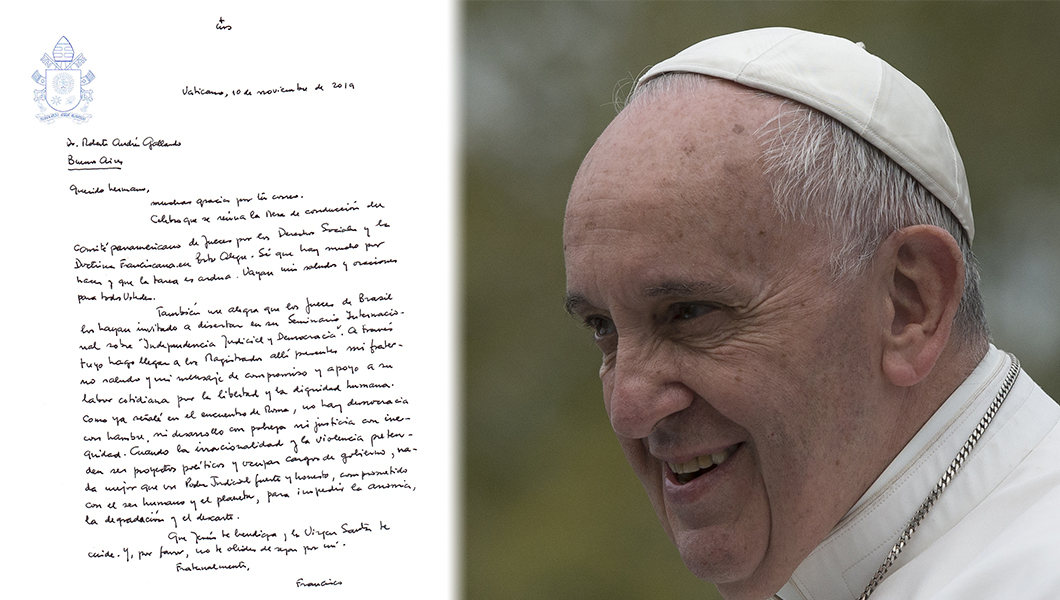 Vaticano, 10 de noviembre de 2019
Dr. Roberto Andrés Gallardo
Buenos Aires
Querido hermano,
muchas gracias por tu correo.
Celebro que se reúna la Mesa de conducción del
Comité panamericano de Jueces por los Derechos Sociales y la
Doctrina Franciscana en Porto Alegre. Sé que hay mucho por
hacer y que la tarea es ardua. Vayan mis saludos y oraciones
para todos Ustedes.
También me alegra que los Jueces de Brasil
los hayan invitado a disertar en su Seminario Internacio-
nal sobre "Independencia Judicial y Democracia". A través
tuyo hago llegar a los Magistrados allí presentes mi frater-
no saludo y mi mensaje de compromiso y apoyo a su
labor cotidiana por la libertad y la dignidad humana.
Como ya señalé en el encuentro de Roma, no hay democracia
con hambre, ni desarrollo con pobreza ni justicia con ine-
quidad. Cuando la irracionalidad y la violencia preten-
den ser proyectos políticos y ocupan cargos de gobierno, na-
da mejor que un Poder Judicial fuerte y honesto, comprometido
con el ser humano y el planeta, para impedir la anomia,
la degradación y el descarte.
Que Jesús te bendiga y la Virgen Santa te
cuide. Y, por favor, no te olvides de rezar por mí.
Fraternalmente,
Francisco